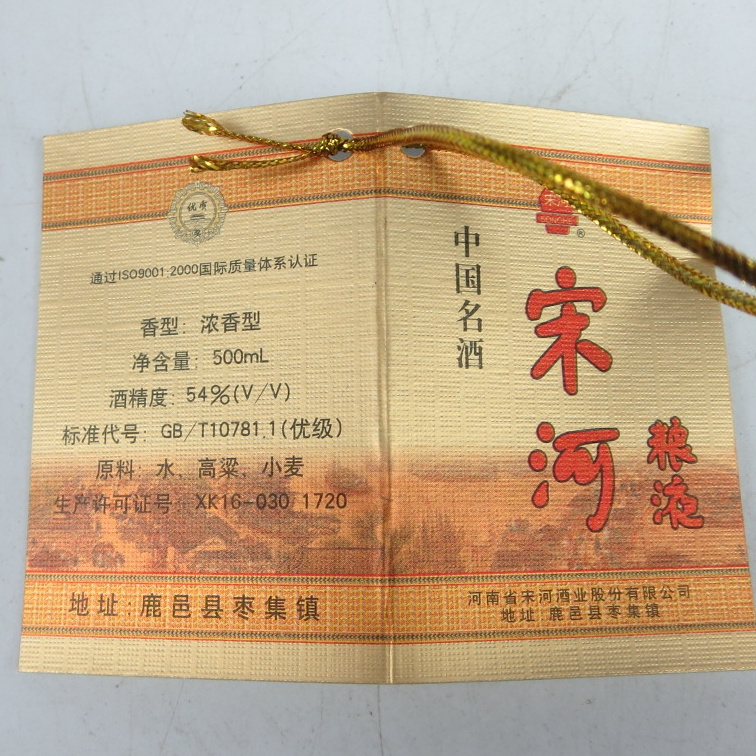 优质
通过ISO9001:2000国际质量体系认证
香型: 浓香型
净含量: 500mL
酒精度: 54%(V/V)
标准代号: GB/T10781.1(优级)
原料: 水、高粱、小麦
生产许可证号: XK16-030 1720
地址: 鹿邑县枣集镇
®
中国名酒
宋河
粮液
河南省宋河酒业股份有限公司
地址: 鹿邑县枣集镇